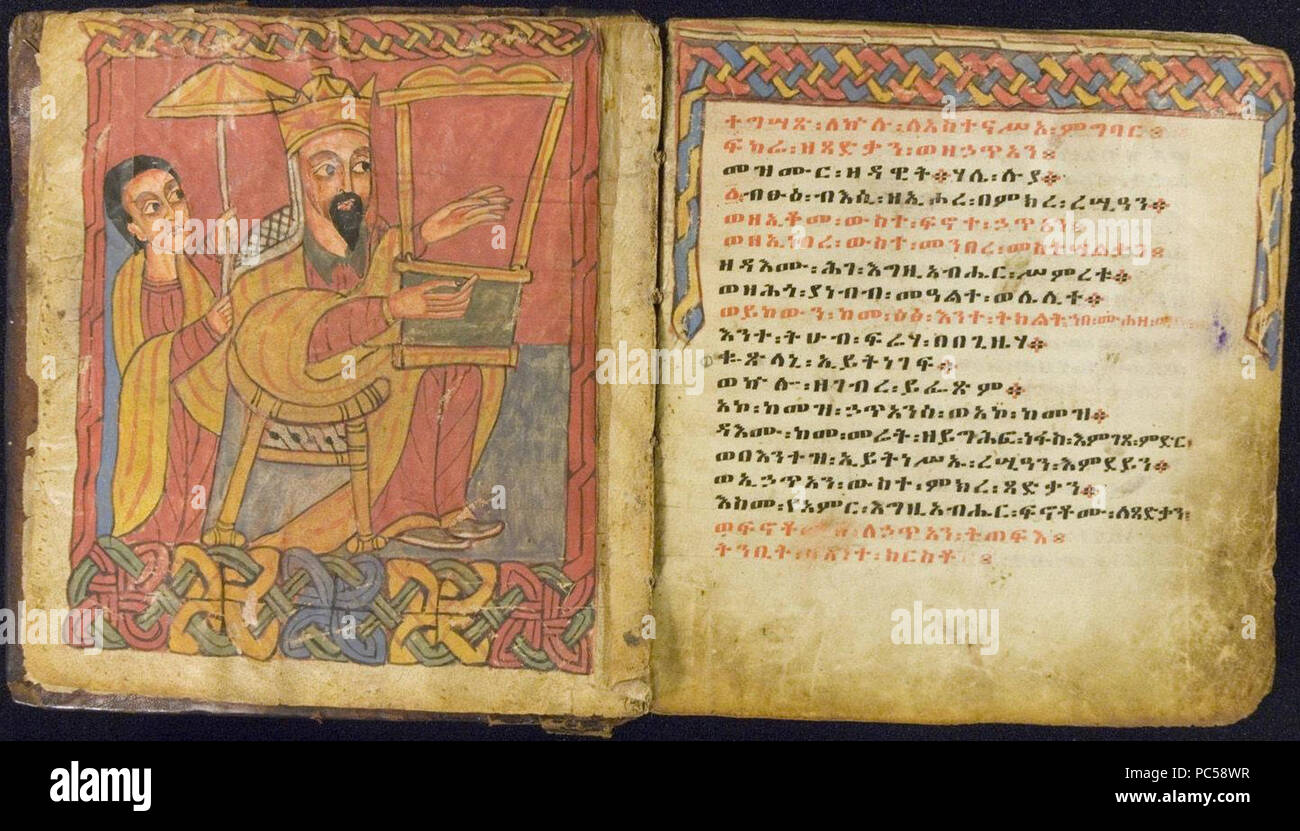 ተግሣጽ፡ለኵሉ፡ለአስተናሥአ፡ምግባር።
ፍካሬ፡ዘጻድቃን፡ወዘኃጥአን።
መዝሙር፡ዘዳዊት፨ሃሌ፡ሉያ፨
ብፁዕ፡ብእሲ፡ዘኢሖረ፡በምክረ፡ረሢዓን፨
ወዘኢቆመ፡ውስተ፡ፍኖተ፡ኃጥአን።
ወዘኢነበረ፡ውስተ፡መንበረ፡መስተሳልቃን።
ዘዳእሙ፡ሕገ፡እግዚአብሔር፡ሥምረቱ፨
ወዘሕጎ፡ያነብብ፡መዓልተ፡ወሌሊተ፨
ወይከውን፡ከመ፡ዕፅ፡እንተ፡ትክልት፡ኀበ፡ሙሐዘ፡
እንተ፡ትሁብ፡ፍሬሃ፡በበጊዜሃ፨
ቈጽላኒ፡ኢይትነገፍ፨
ወኵሎ፡ዘገብረ፡ይፌጽም፨
አኮ፡ከመዝ፡ኃጥአንሰ፡ወአኮ፡ከመዝ፨
ዳእሙ፡ከመ፡መሬት፡ዘይግሕፍ፡ነፋስ፡እምገጸ፡ምድር፡
ወበእንተዝ፡ኢይትነሥኡ፡ረሢዓን፡እምደይን፨
ወኢኃጥአን፡ውስተ፡ምክረ፡ጻድቃን፨
እስመ፡የአምር፡እግዚአብሔር፡ፍኖቶሙ፡ለጻድቃን፡
ወፍኖቶሙሰ፡ለኃጥአን፡ትጠፍእ።
ትንቢት፡በእንተ፡ክርስቶስ።
alamy
alamy stock photo
PC58WR
www.alamy.com